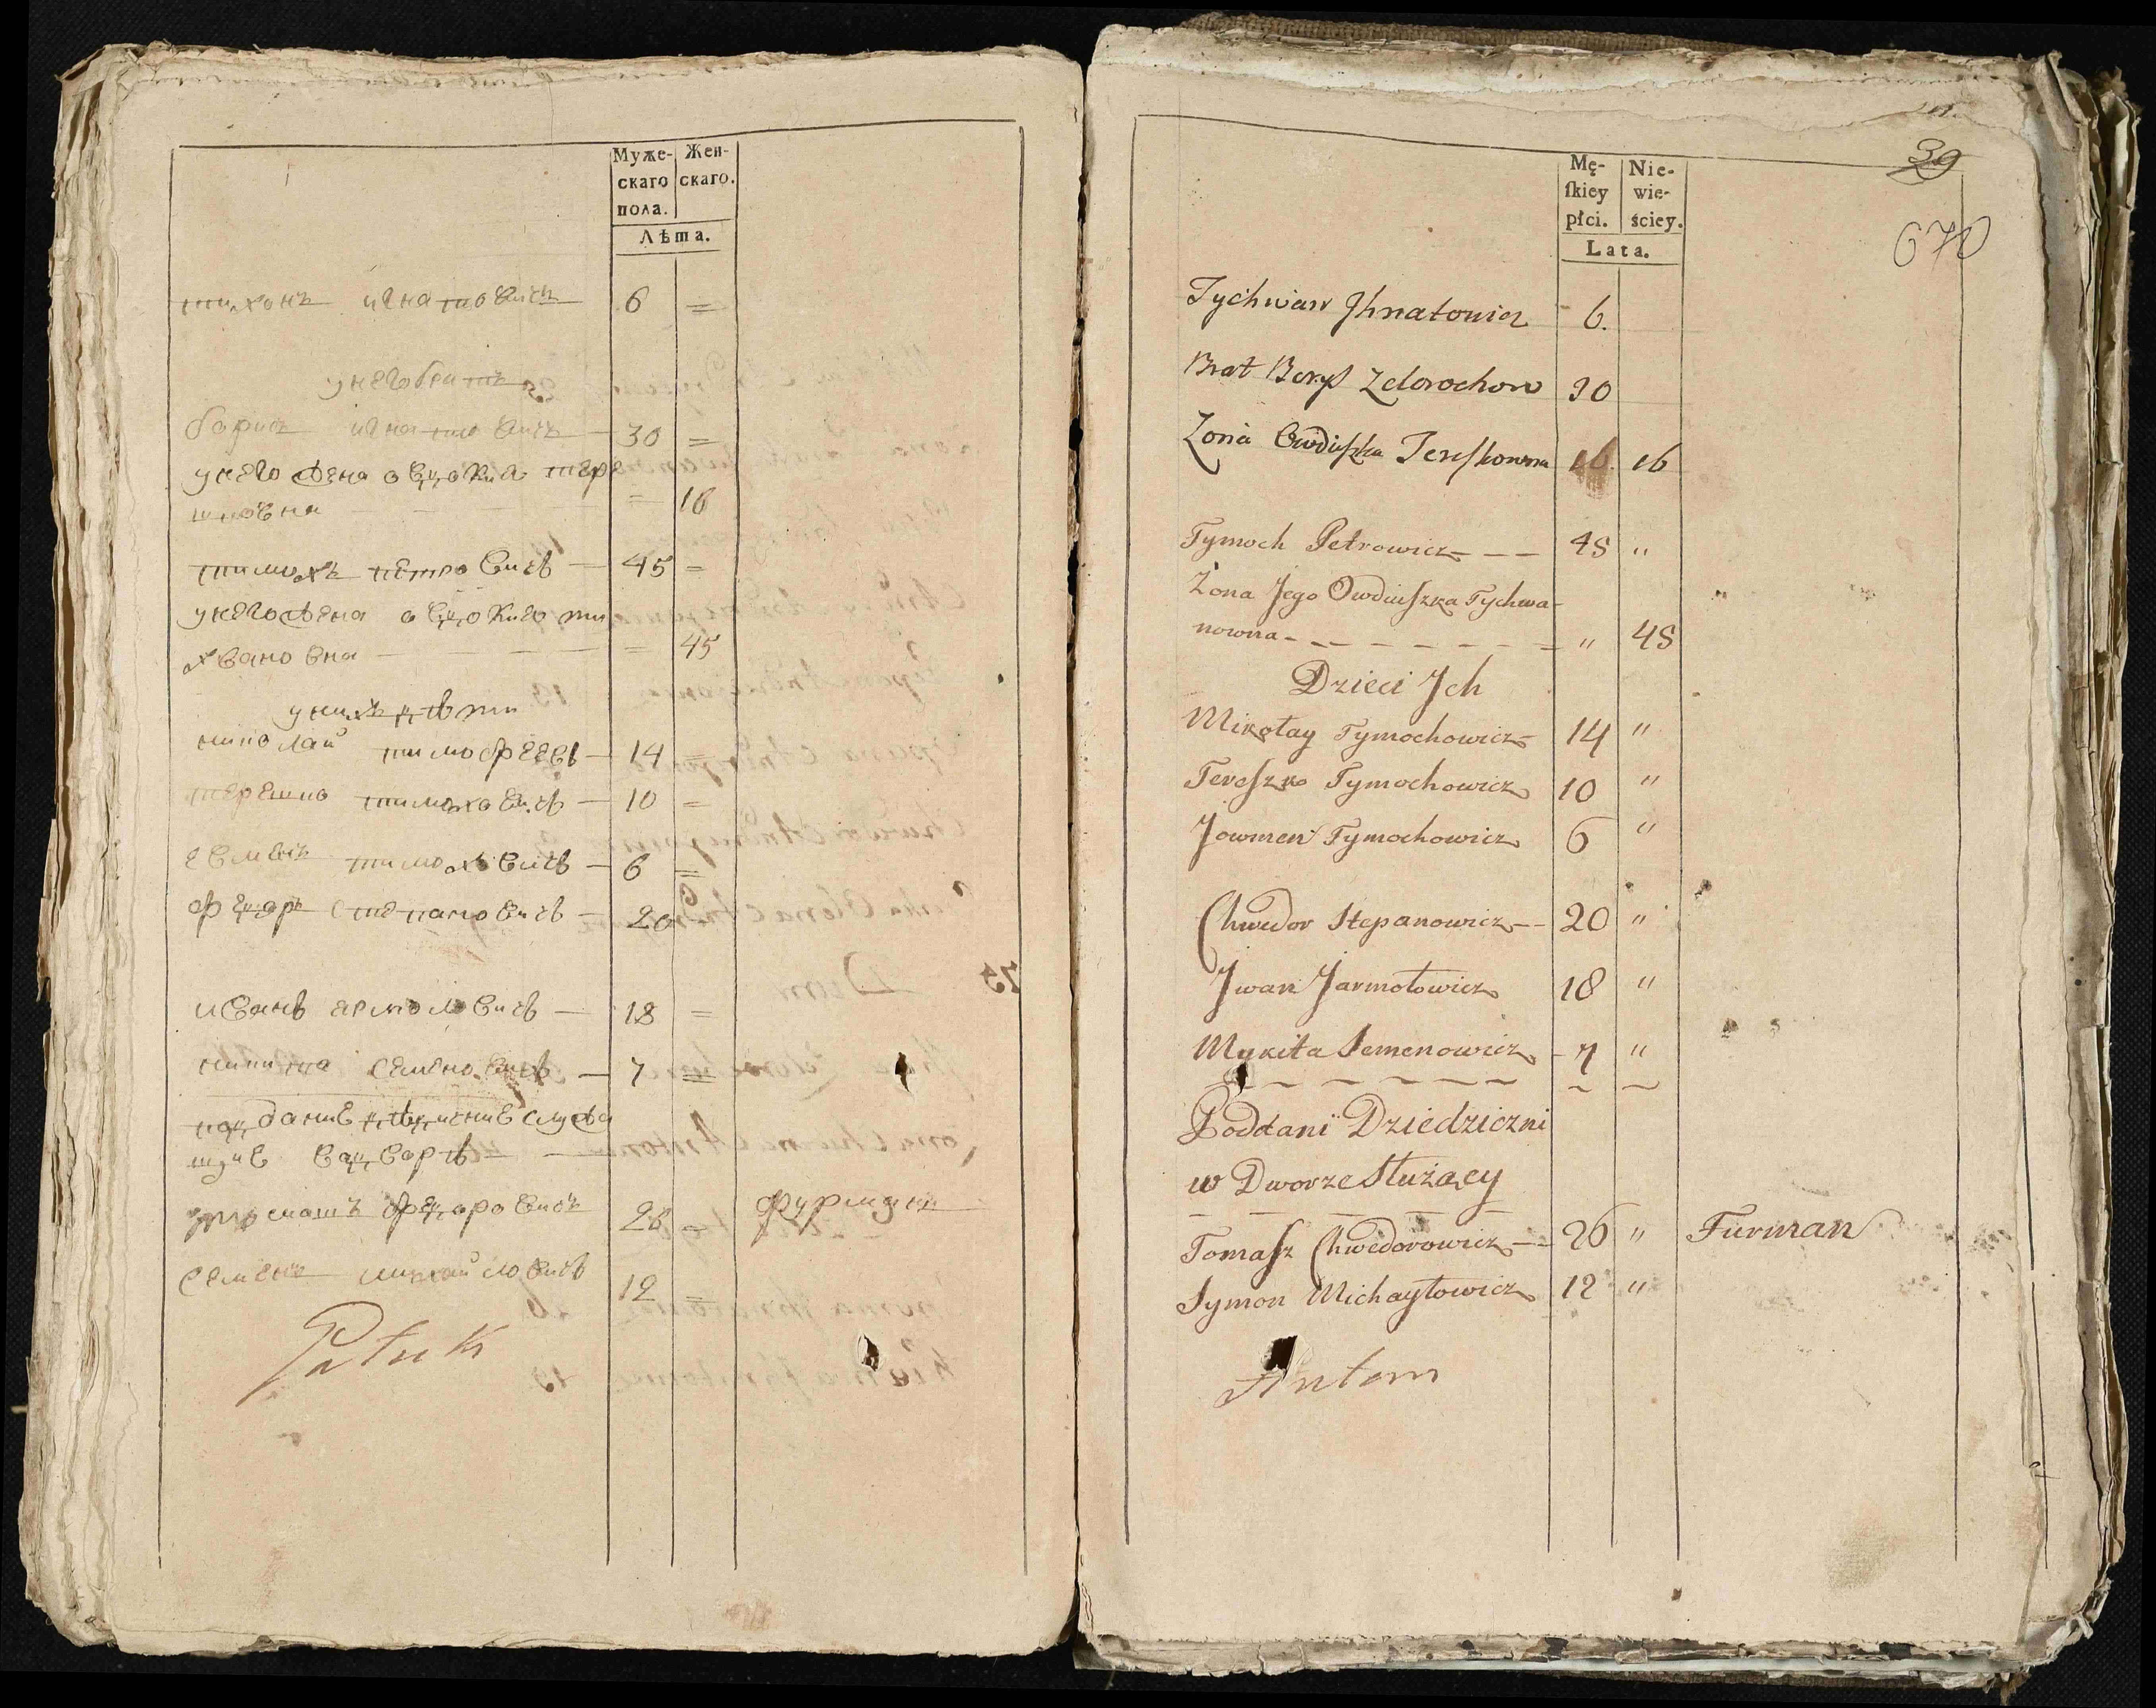 Муже-
скаго
пола.
Жен-
скаго.
Лѣта.
тихонъ игнатовичъ 6 =
у него братъ
борисъ игнатовичъ — 30 =
у него жена овдокия тере
шковна = 16
тимохъ петровичъ — 45 =
у него жена овдокия ти
хвановна = 45
у нихъ дѣти
николай тимофеевъ — 14 =
терешко тимоховичъ — 10 =
евменъ тимоховичъ — 6 =
федоръ степановичъ — 20
иванъ ярмоловичъ — 18 =
никита семеновичъ — 7 =
поддание дедичние служа
щие въ дворѣ
томашъ федоровичъ 26 = фурманъ
семенъ михайловичъ 12 =
39
670
Mę-
ſkiey
płci.
Nie-
wie-
ściey.
Lata.
Tychwan Jhnatowicz 6.
Brat Borys Zdorochow 30
Zona Owdiuszka Tereszkowna 16. 16
Tymoch Petrowicz — — 45 "
Żona Jego Owdiuszka Tychwa-
nowna - — — — — — = " 45
Dzieci Jch
Mikołay Tymochowicz 14 "
Tereszko Tymochowicz 10 "
Jowmen Tymochowicz 6 "
Chwedor Stepanowicz — 20 "
Jwan Jarmołowicz 18 "
Mykita Semenowicz - 7 "
Poddani Dziedziczni
w Dworze Służący
Tomasz Chwedorowicz — 26 " Furman
Symon Michayłowicz 12 "
Antom